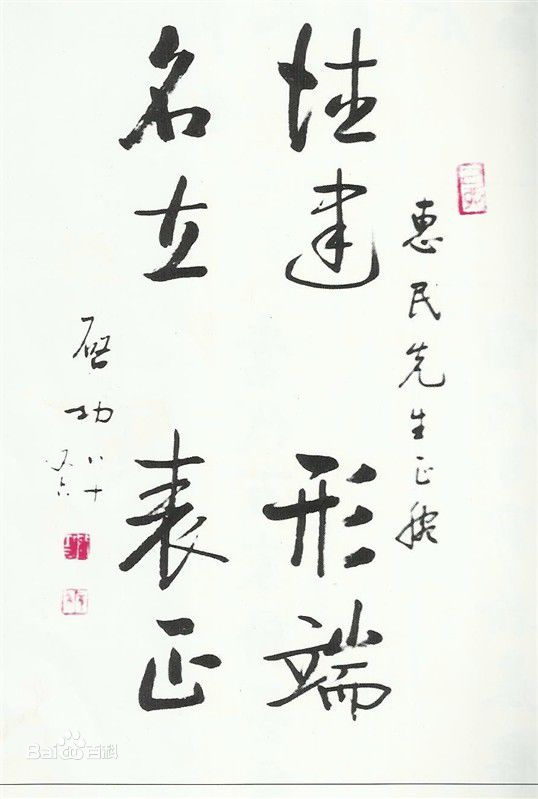 惠民先生正腕
德建 形端
名立 表正
启功 八十
又六
Bai du 百科